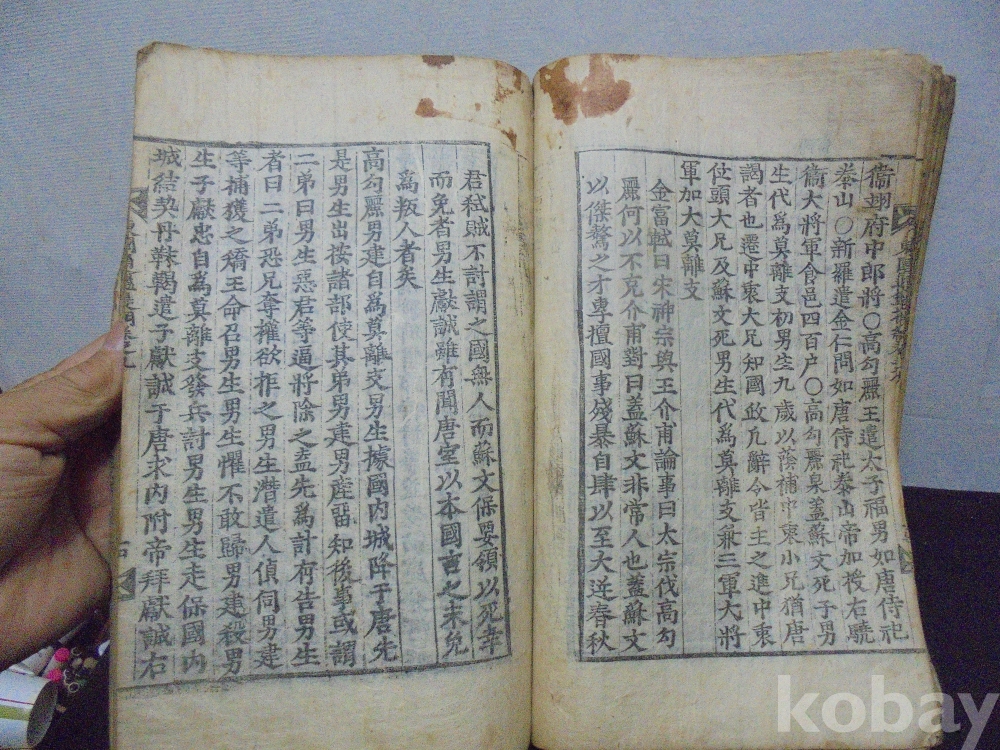 衞翊府中郎將○高勾麗王遣太子福男如唐侍祀
泰山○新羅遣金仁問如唐侍祀泰山帝加授右驍
衞大將軍食邑四百户○高勾麗泉蓋蘇文死子男
生代爲莫離支初男生九歲以蔭補中裏小兄猶唐
謁者也遷中裏大兄知國政凡辭令皆主之進中裏
位頭大兄及蘇文死男生代爲莫離支兼三軍大將
軍加大莫離支
金富軾曰宋神宗與王介甫論事曰太宗伐高勾
麗何以不克介甫對曰蓋蘇文非常人也蓋蘇文
以傑驁之才專擅國事殘暴自肆以至大逆春秋
君弑賊不討謂之國無人而蘇文保要領以死幸
而免者男生獻誠雖有聞唐室以本國言之未免
爲叛人者矣
高勾麗男建自爲莫離支男生據國内城降于唐先
是男生出按諸部使其弟男建男産留知後事或謂
二弟曰男生惡君等逼將除之盍先爲計有告男生
者曰二弟恐兄奪權欲拒之男生潛遣人偵伺男建
等捕獲之矯王命召男生男生懼不敢歸男建殺男
生子獻忠自爲莫離支發兵討男生男生走保國内
城結契丹靺鞨遣子獻誠于唐求内附帝拜獻誠右
kobay